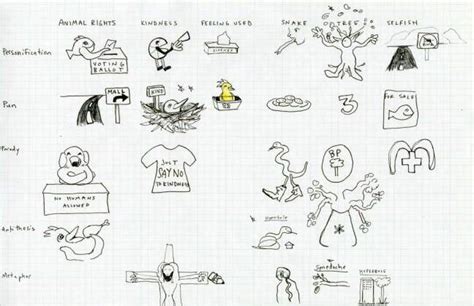 ANIMAL RIGHTS KINDNESS FEELING USED SNAKE TREE SELFISH
Personification
VOTING
BALLOT
Pun
MALL
KIND
FOR SALE
3
Parody
JUST
SAY NO
TO KINDNESS
BP
NO HUMANS
ALLOWED
Antithesis
Hyperbole
Metaphor